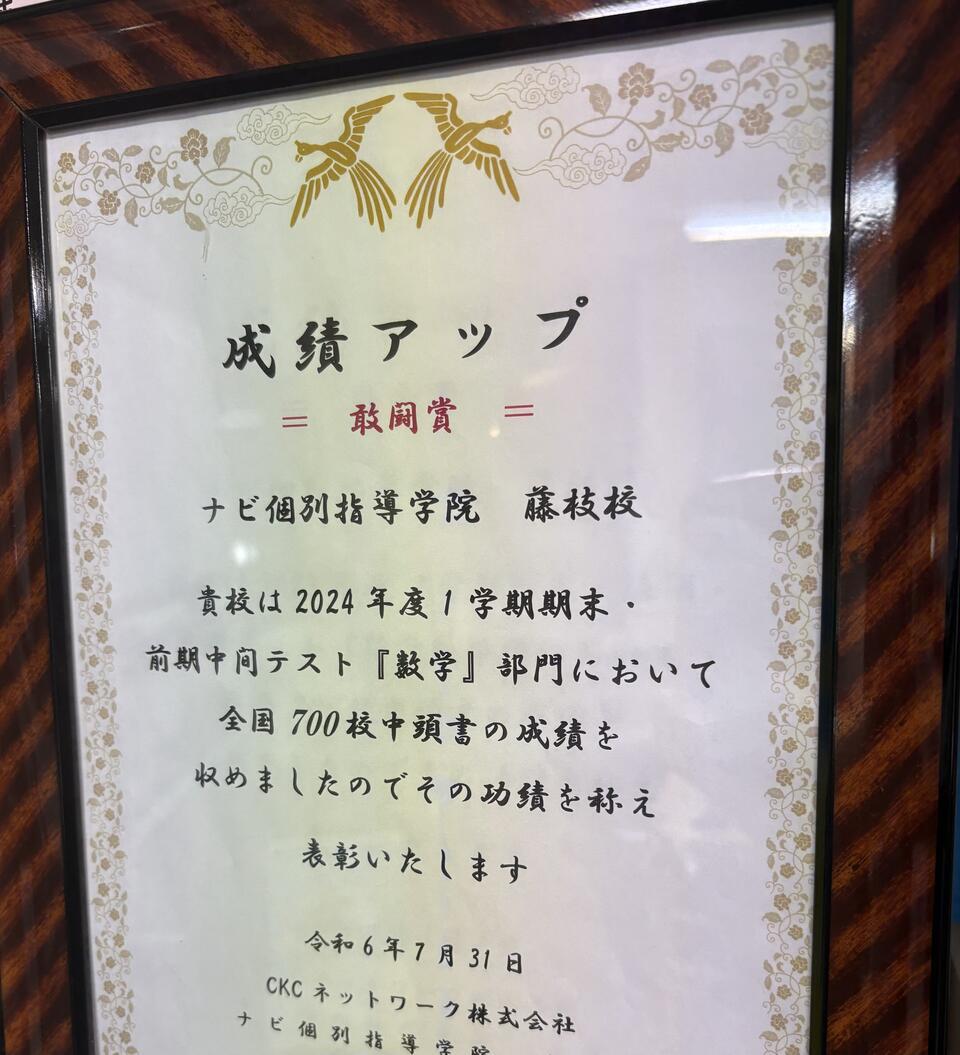 成績アップ
＝ 敢闘賞 ＝
ナビ個別指導学院 藤枝校
貴校は2024年度1学期期末・
前期中間テスト『数学』部門において
全国700校中頭書の成績を
収めましたのでその功績を称え
表彰いたします
令和6年7月31日
CKCネットワーク株式会社
ナビ個別指導学院